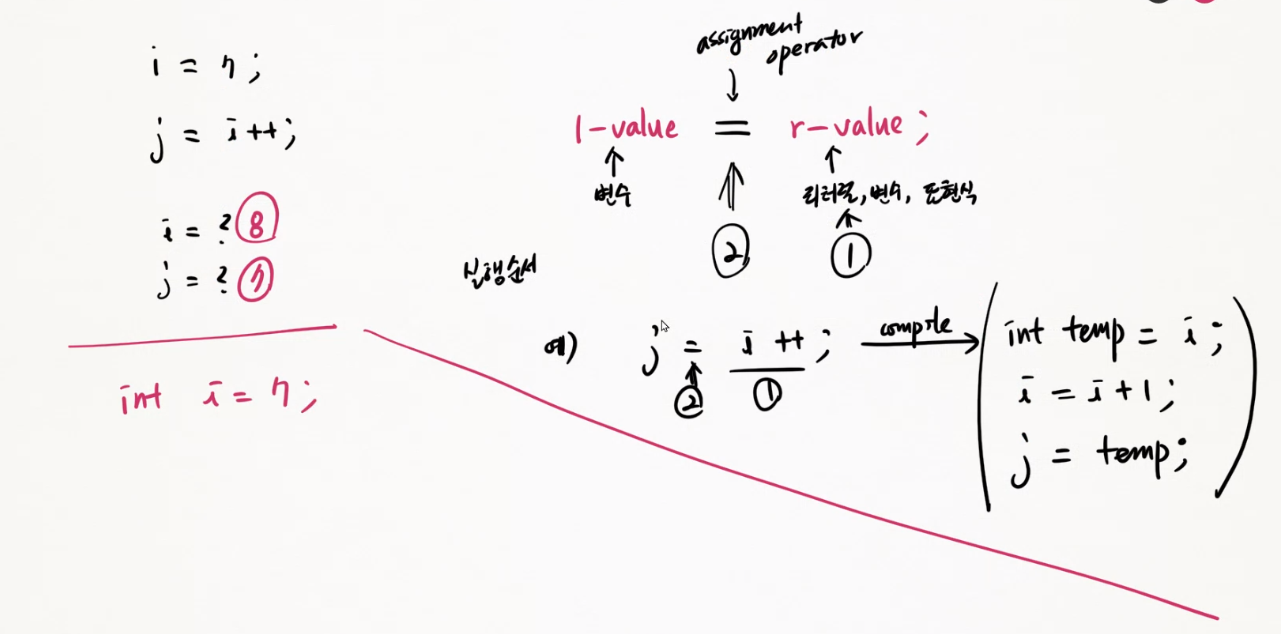 i = 7;
j = i++;
i = ? 8
j = ? 7
int i = 7;
assignment
operator
↓
l-value = r-value;
↑ ⇑ ↑
변수
리터럴, 변수, 표현식
↑
② ①
실행순서
예) j = i++; compile →
② ①
int temp = i;
i = i+1;
j = temp;